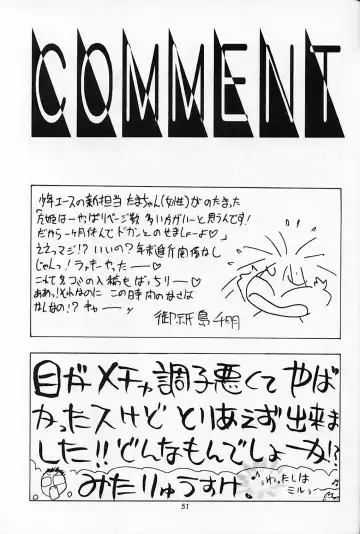 COMMENT
少年エースの新担当 たまちゃん(女性)がのたまった
「々姫はーやっぱりページ数 多い方がいーと思うんです!
だから一ヶ月休んでドカンとのせましょーよ♡」
ええっマジ!? いいの? 年末進行関係なし
じゃんっ! ラッキーやったー——♡
これで 入稿もばっちりー♡
ああっ! それなのに この時間のなさは
なんなの!? キャー——ッ
御祇島千明
目がメチャ調子悪くて やば
かったスけど とりあえず出来ま
した!! どんなもんでしょーか!?
みたりゅうすけ。
♪わったしは
ミルゥ
51